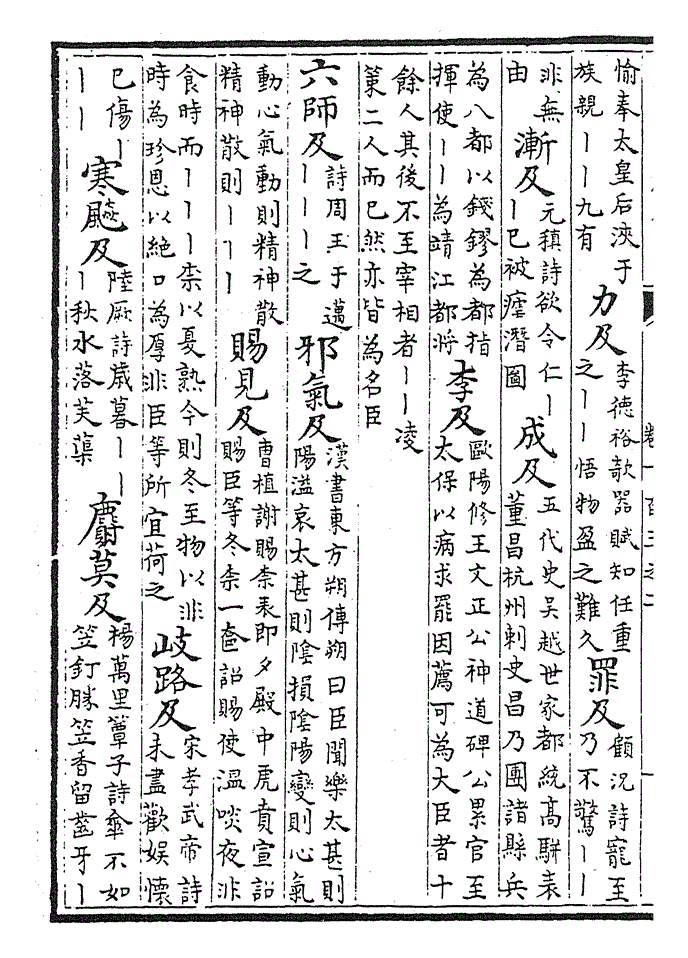 愉奉太皇后浹于
族親｜｜九有
力及
李德裕欹器賦知任重
之｜｜悟物盈之難久
罪及
顧況詩寵至
乃不驚｜｜
非無
由
漸及
元稹詩欲令仁｜
｜已被瘽潛圖
成及
五代史吳越世家都統高駢表
董昌杭州刺史昌乃團諸縣兵
為八都以錢鏐為都指
揮使｜｜為靖江都將
李及
歐陽修王文正公神道碑公累官至
太保以病求罷因薦可為大臣者十
餘人其後不至宰相者｜｜凌
策二人而已然亦皆為名臣
六師及
詩周王于邁
｜｜｜之
邪氣及
漢書東方朔傳朔曰臣聞樂太甚則
陽溢哀太甚則陰損陰陽變則心氣
動心氣動則精神散
精神散則｜｜｜
賜見及
曹植謝賜柰表即夕殿中虎賁宣詔
賜臣等冬柰一奩詔賜使溫啖夜非
食時而｜｜｜柰以夏熟今則冬至物以非
時為珍恩以絶口為厚非臣等所宜荷之
歧路及
宋孝武帝詩
未盡歡娛懷
已傷｜
｜｜
寒飈及
陸厥詩歲暮｜｜
｜秋水落芙蕖
麝莫及
楊萬里蕈子詩傘不如
笠釘勝笠香留齒牙｜